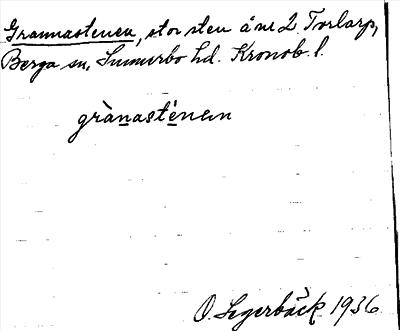 Grannastenen, stor sten å nr 2 Torlarp,
Berga sn, Sunnerbo hd. Kronob. l.
grànasténen
O. Segerbäck 1936